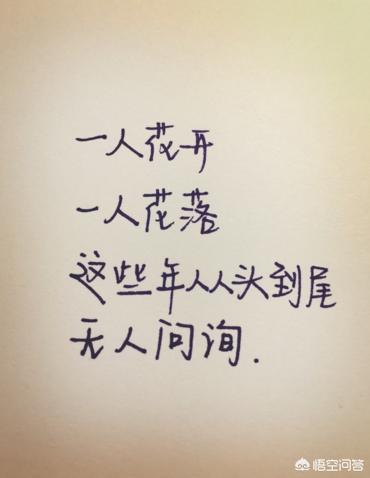 一人花开
一人花落
这些年从头到尾
无人问询.
悟空问答